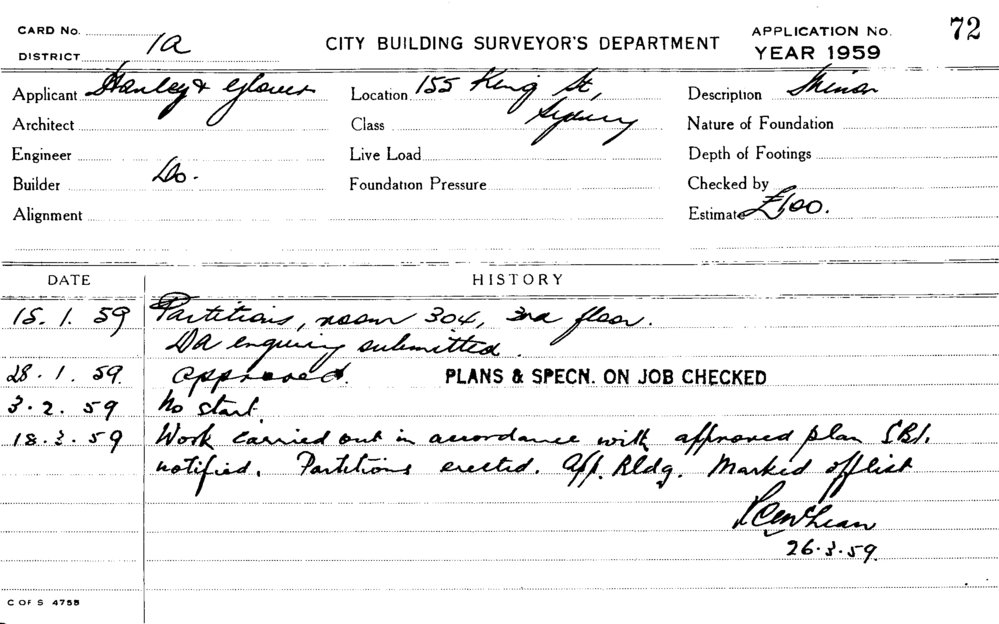 CARD No.
DISTRICT 1a
CITY BUILDING SURVEYOR'S DEPARTMENT
APPLICATION No. 72
YEAR 1959
Applicant Stanley & Glover
Location 155 King St,
Sydney
Description Minor
Architect
Class
Nature of Foundation
Engineer
Live Load
Depth of Footings
Builder Do.
Foundation Pressure
Checked by
Alignment
Estimate £100.
DATE HISTORY
15. 1. 59 Partitions, room 304, 3rd floor.
DA enquiry submitted.
28. 1. 59. approved. PLANS & SPECN. ON JOB CHECKED
3. 2. 59 No start
18. 3. 59 Work carried out in accordance with approved plan
notified. Partitions erected. App. Bldg. Marked off list
26. 3. 59.
C OF S 475B